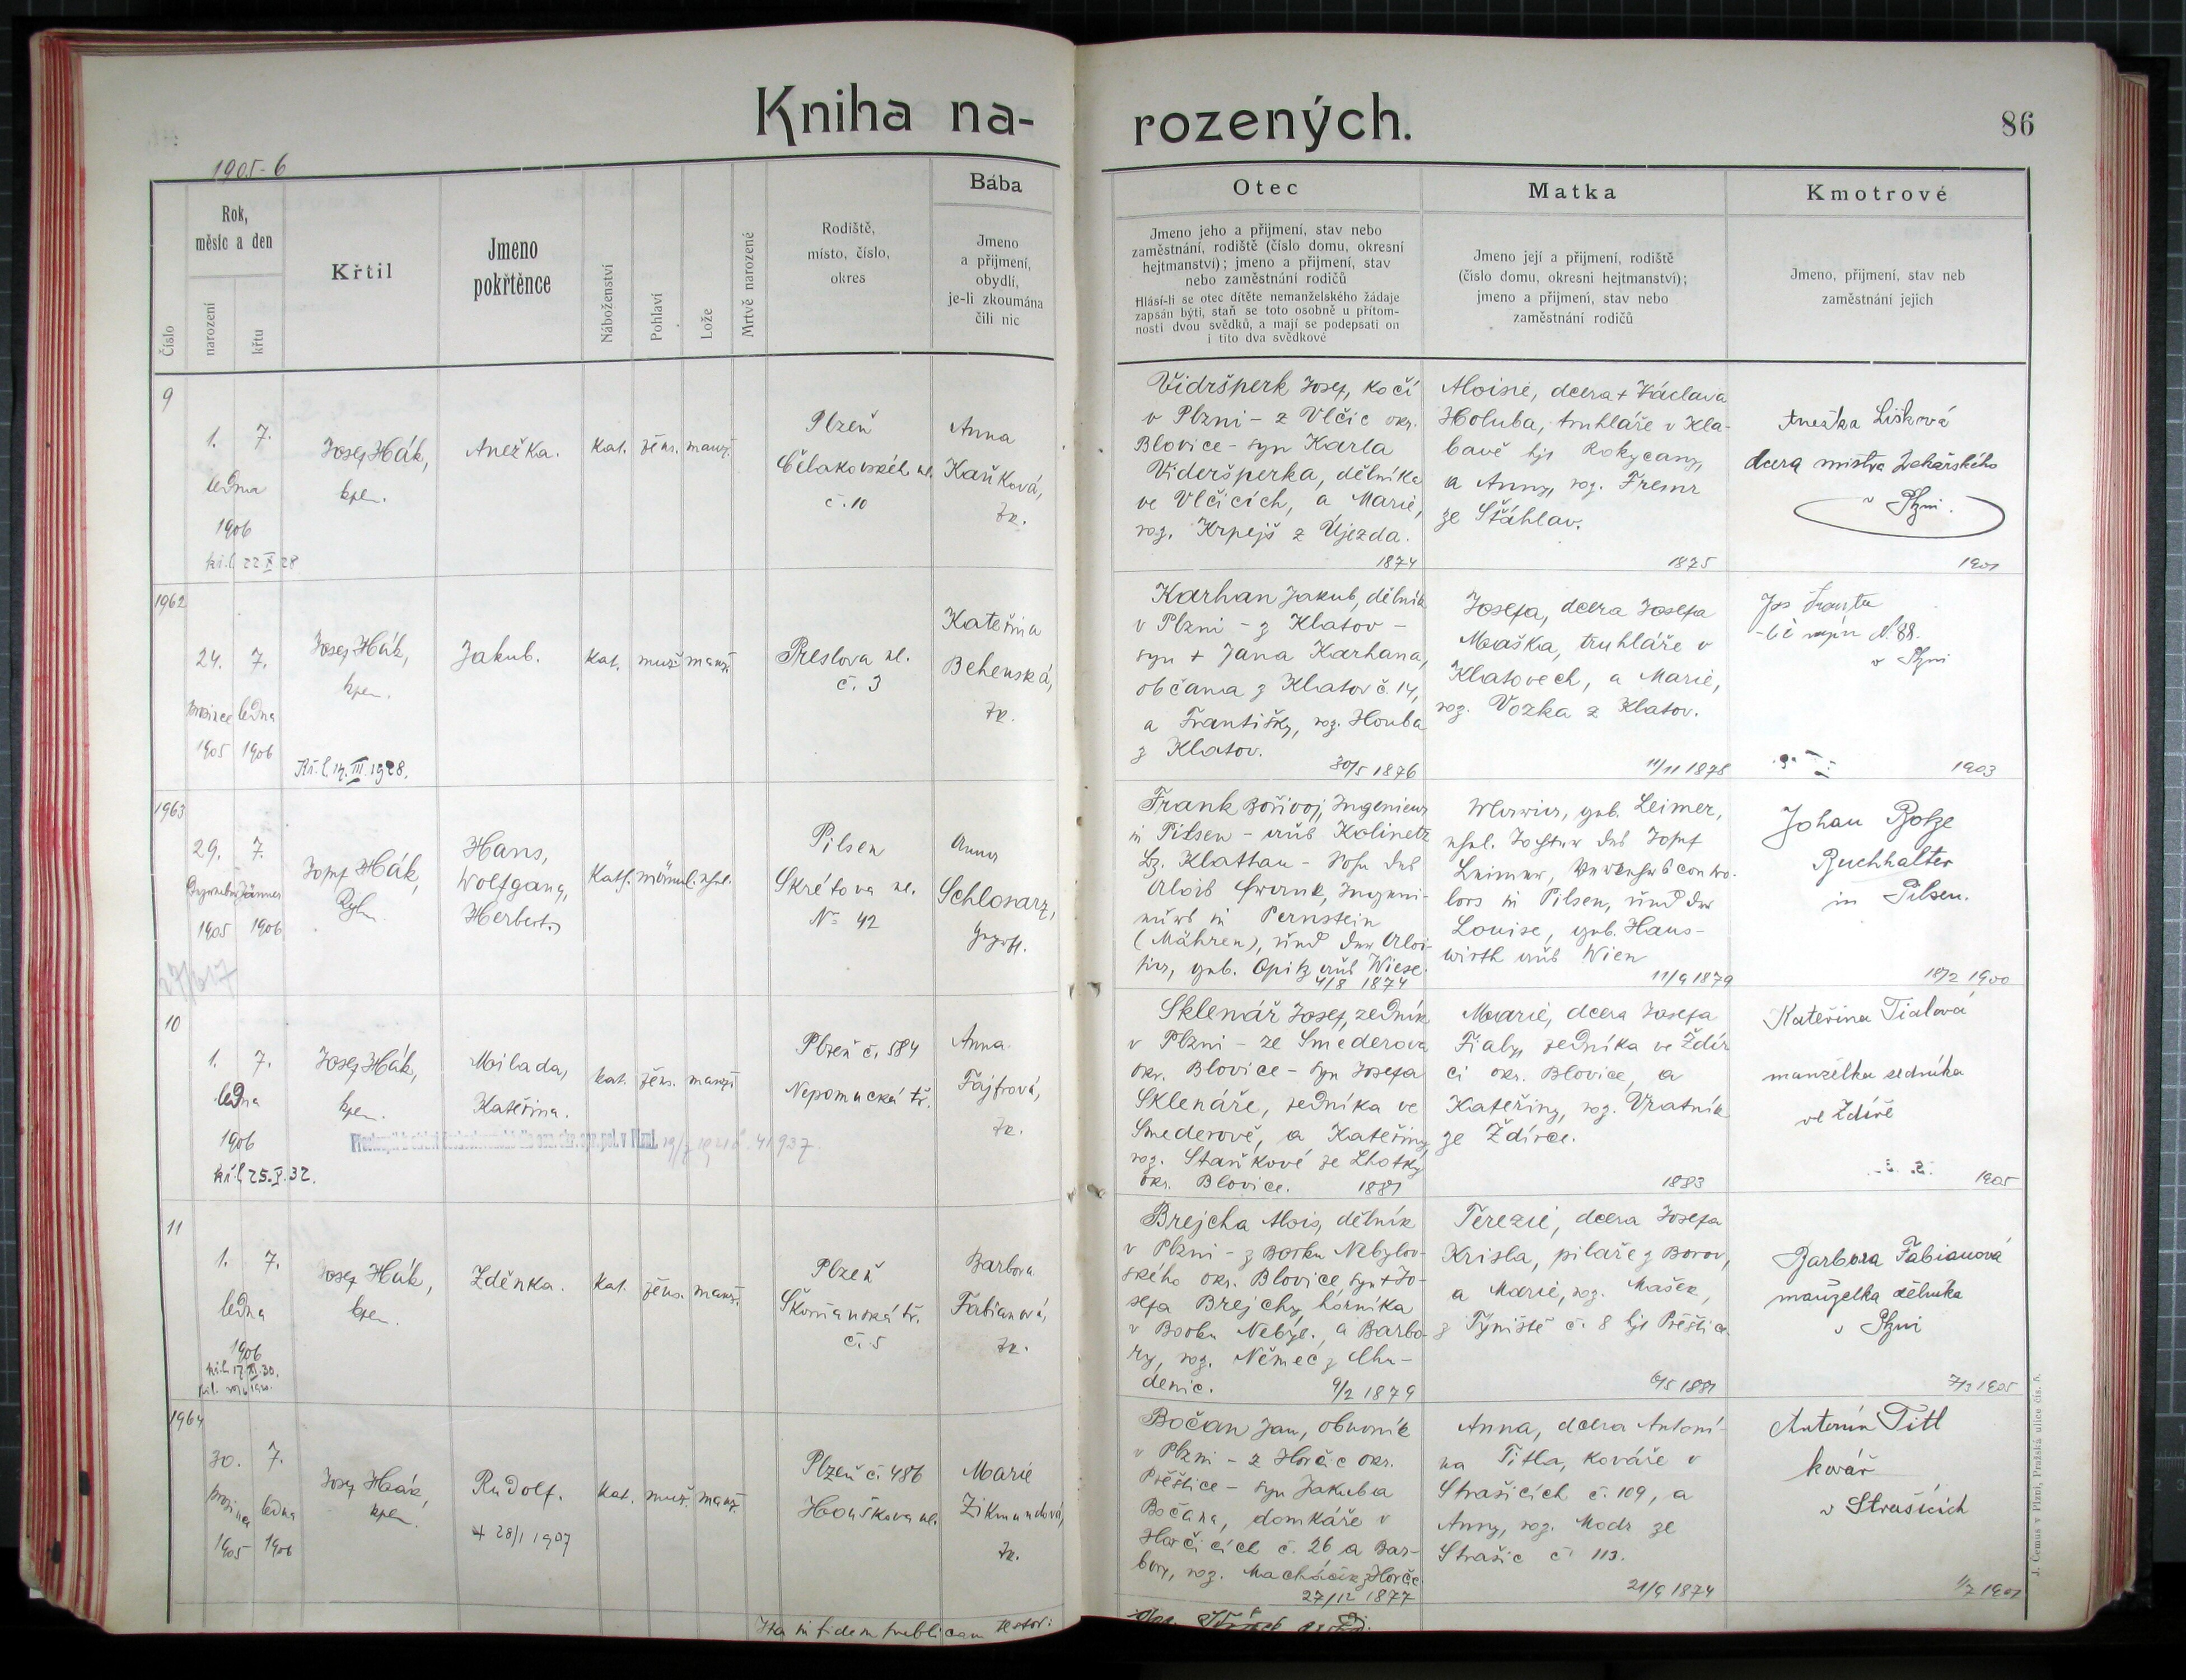 Kniha na-
rozených.
86
1905-6
Číslo
Rok,
měsíc a den
narození
křtu
Křtil
Jmeno
pokřtěnce
Náboženství
Pohlaví
Lože
Mrtvě narozené
Rodiště,
místo, číslo,
okres
Bába
Jmeno
a přijmení,
obydlí,
je-li zkoumána
čili nic
Otec
Jmeno jeho a přijmení, stav nebo
zaměstnání, rodiště (číslo domu, okresní
hejtmanství); jmeno a přijmení, stav
nebo zaměstnání rodičů
Hlásí-li se otec dítěte nemanželského žádaje
zapsán býti, staň se toto osobně u přítom-
nosti dvou svědků, a mají se podepsati on
i tito dva svědkové
Matka
Jmeno její a přijmení, rodiště
(číslo domu, okresní hejtmanství);
jmeno a přijmení, stav nebo
zaměstnání rodičů
Kmotrové
Jmeno, přijmení, stav neb
zaměstnání jejich
9
1.
7.
ledna
1906
kř. l. 22 X 28
Josef Hák,
kpl.
Anežka.
kat.
žens.
manž.
Plzeň
Čelakovskéh. ul.
č. 10
Anna
Kaňková,
zk.
Vidršperk Josef, kočí
v Plzni - z Vlčic okr.
Blovice - syn Karla
Videršperka, dělníka
ve Vlčicích, a Marie,
roz. Krpejš z Újezda.
1874
Aloisie, dcera + Václava
Holuba, truhláře v Kla-
bavě hjt Rokycany,
a Anny, roz. Fremr
ze Šťáhlav.
1875
Anežka Lišková
dcera mistra
v Plzni.
1901
1962
24.
7.
prosince
ledna
1905
1906
Josef Hák,
kpl.
Kř. l. 14. III. 1928.
Jakub.
kat.
muž.
manž.
Preslova ul.
č. 3
Kateřina
Behenská,
zk.
Karhan Jakub, dělník
v Plzni - z Klatov -
syn + Jana Karhana,
občana z Klatov č. 14,
a Františky, roz. Houba
z Klatov.
30/5 1876
Josefa, dcera Josefa
Maška, truhláře v
Klatovech, a Marie,
roz. Vozka z Klatov.
11/11 1878
N. 88.
v Plzni
1903
1963
29.
7.
Dezember
Jänner
1905
1906
Josef Hák,
Hans,
Wolfgang,
Herbert.
Kath.
männl.
ehel.
Pilsen
Skrétova ul.
No 42
Anna
Schlosarz,
geprft.
Frank Bořivoj, Ingenieur
in Pilsen - aus Kolinetz
Bz. Klattau - Sohn des
Alois Frank, Ingeni-
eurs in Pernstein
(Mähren), und der Aloi-
sia, geb. Opitz aus Wiese.
4/8 1874
geb. Leimer,
ehel. Tochter des Josef
Leimer,
lors in Pilsen, und der
Louise, geb. Haus-
wirth aus Wien
11/9 1879
Johan
Buchhalter
in Pilsen.
18/2 1900
10
1.
7.
ledna
1906
kř. l. 25. V. 32.
Josef Hák,
kpl.
Milada,
Kateřina.
kat.
žens.
manž.
Plzeň č. 584
Nepomucká tř.
Anna
Fajfrová,
zk.
Sklenář Josef, zedník
v Plzni - ze Smederova
okr. Blovice - syn Josefa
Sklenáře, zedníka ve
Smederově, a Kateřiny,
roz. Staňkové ze Lhotky
okr. Blovice.
1881
Marie, dcera Josefa
Fialy, zedníka ve Ždír
ci okr. Blovice, a
Kateřiny, roz. Vratník
ze Ždírce.
1883
Kateřina Fialová
manželka zedníka
ve Ždíře
1905
11
1.
7.
ledna
1906
Josef Hák,
kpl.
Zdenka.
kat.
žens.
manž.
Plzeň
Škorňanská tř.
č. 5
Barbora
Fabianová,
zk.
Brejcha Alois, dělník
v Plzni - z Borku Nebylov-
ského okr. Blovice, syn + Jo-
sefa Brejchy, horníka
v Borku Nebyl., a Barbo-
ry, roz. Němec z Chu-
denic.
9/2 1879
Terezie, dcera Josefa
Krisla, pilaře z Borov,
a Marie, roz. Mašek,
z Týniště č. 8 hjt Přeštice.
6/5 1881
Barbora Fabianová
manželka dělníka
v Plzni
7/3 1905
1964
30.
7.
prosince
ledna
1905
1906
Josef Hák,
kpl.
Rudolf.
+ 28/1 1907
kat.
muž.
manž.
Plzeň č. 486
Houškova ul.
Marie
Zikmundová,
zk.
Bočan Jan, obuvník
v Plzni - z Horčic okr.
Přeštice - syn Jakuba
Bočana, domkáře v
Horčicích č. 26 a Bar-
bory, roz. Macháček z Horčic.
27/12 1877
Anna, dcera Antoní-
na Titla, kováře v
Strašicích č. 109, a
Anny, roz. Modr ze
Strašic č. 113.
21/9 1874
Antonín Titl
kovář
v Strašicích
1/7 1901
Ita in fidem publicam testor:
J. Cemus v Plzni, Pražská ulice čís. 8.